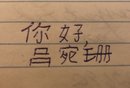 你好,
吕宛珊